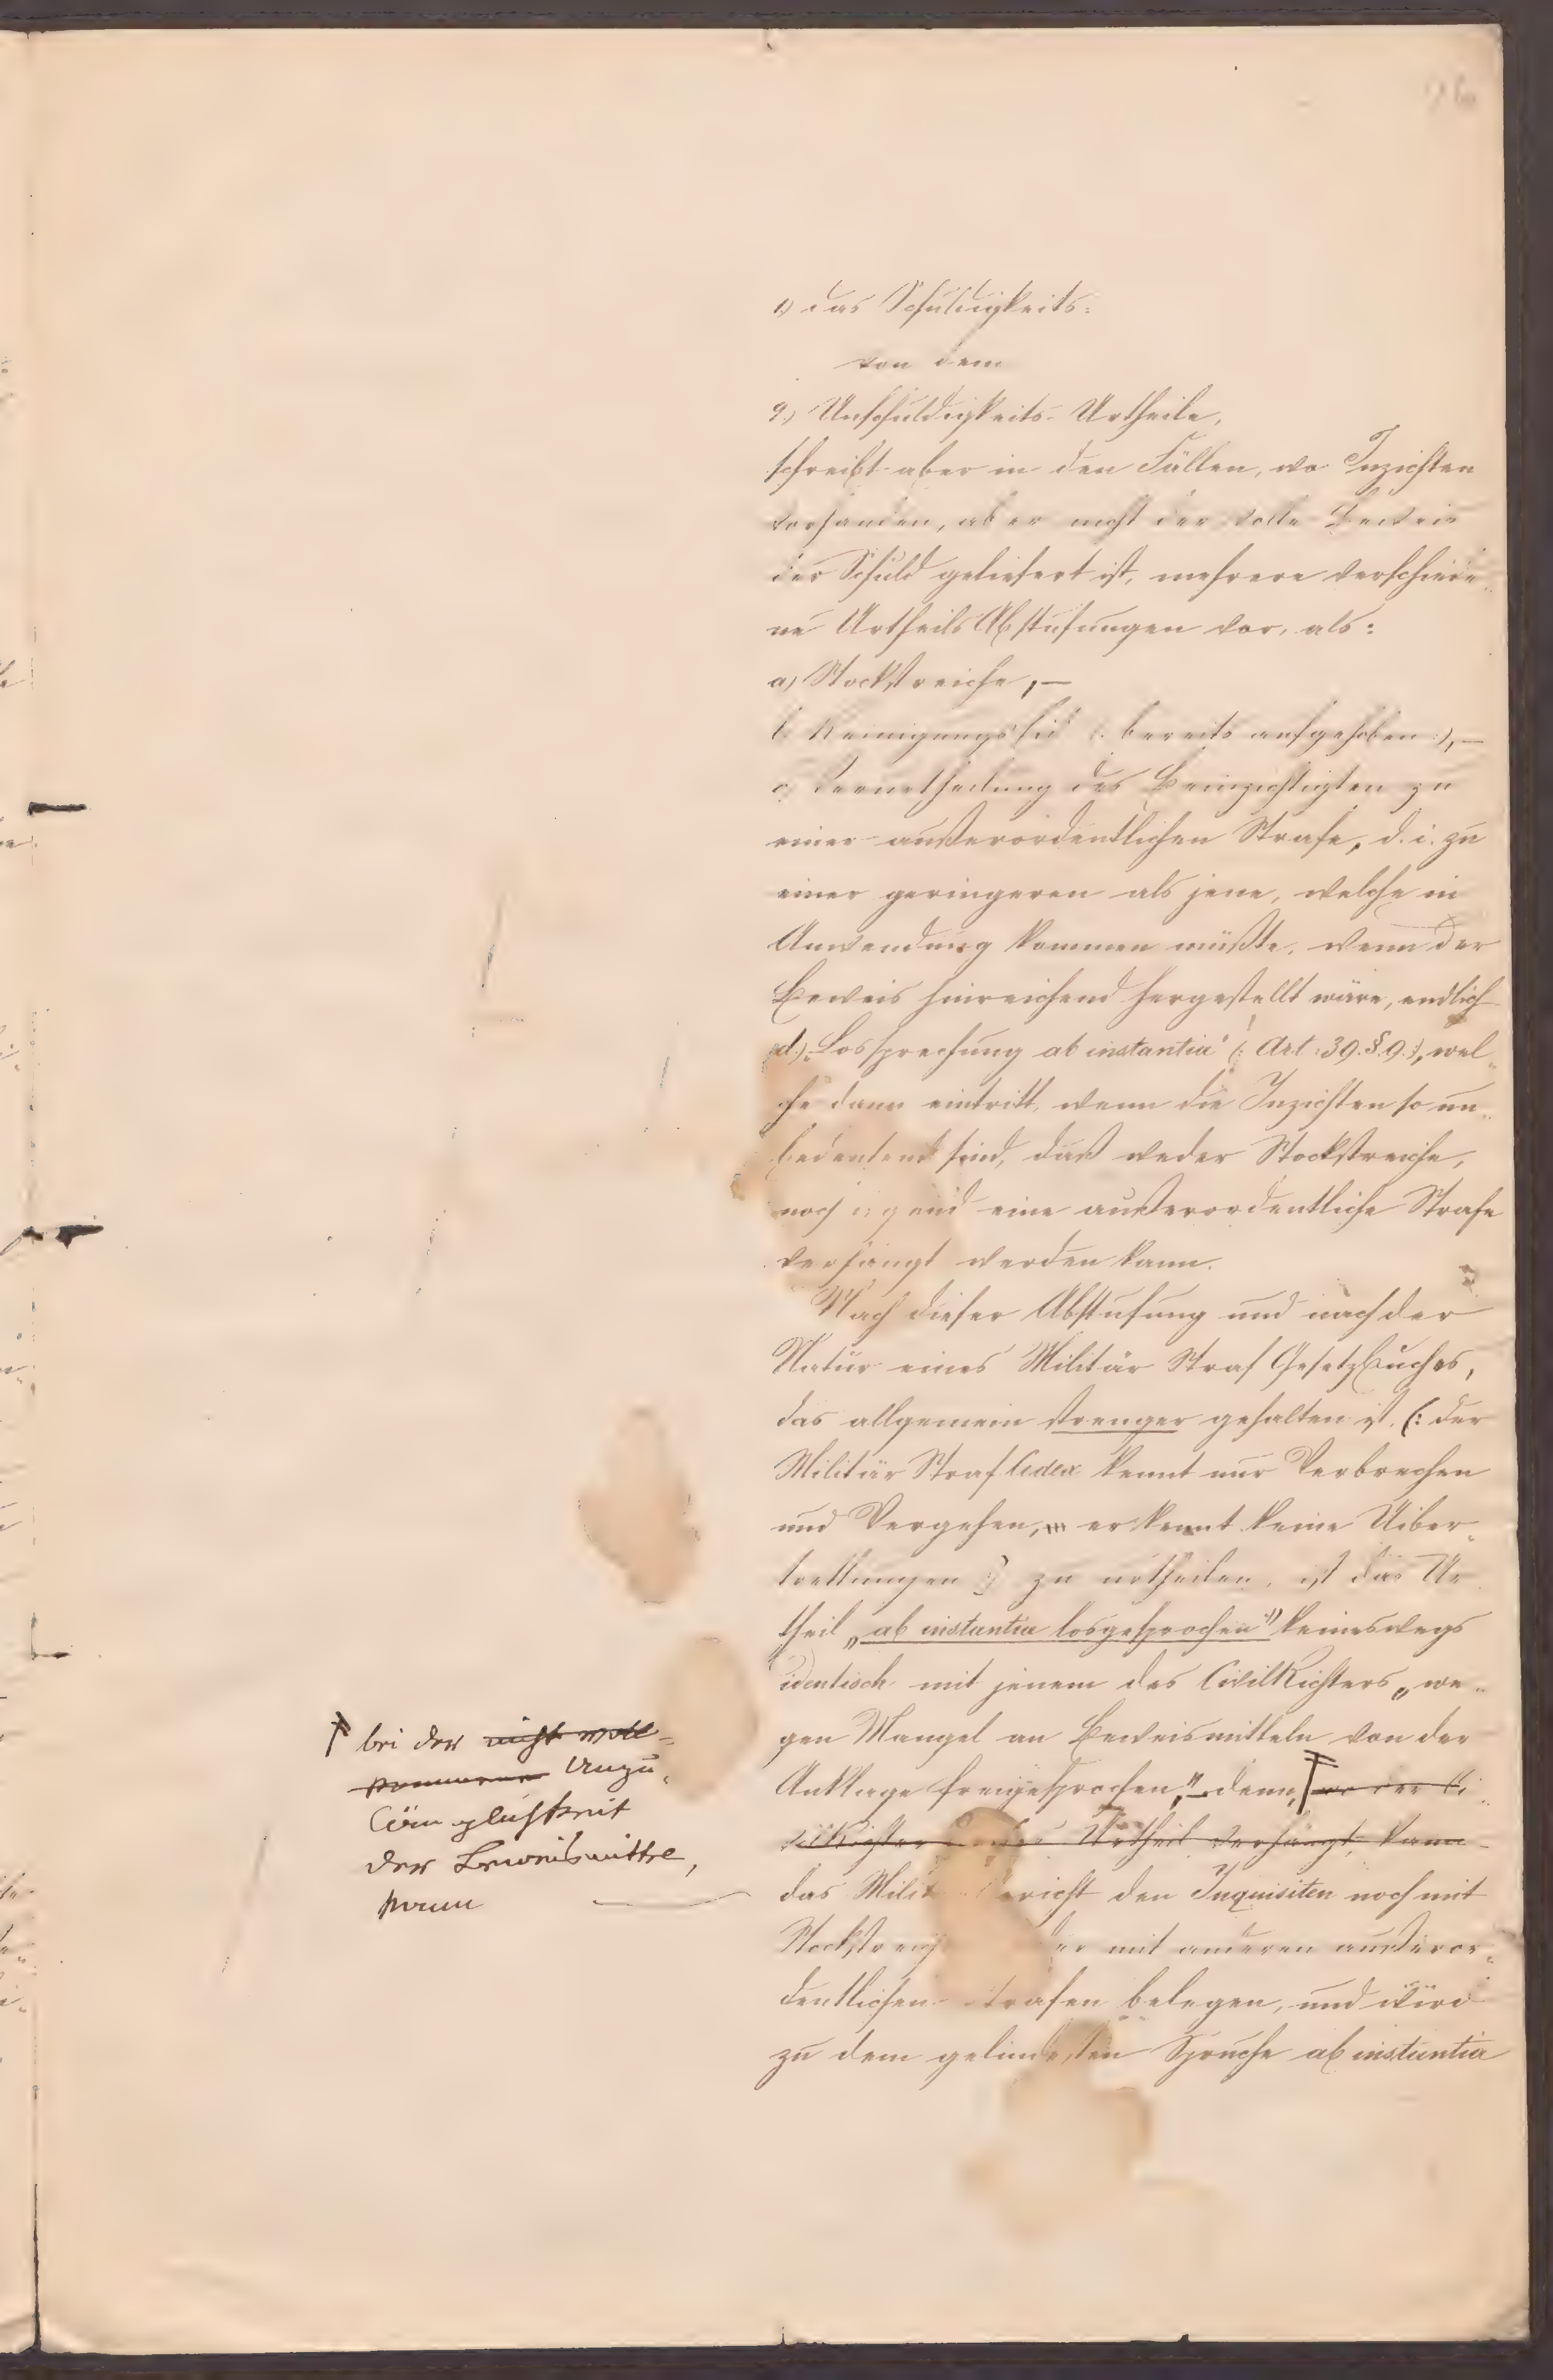 1) das Schuldigkeits-
von dem
2.) Unschuldigkeits-Urtheile,
schreibt aber in den Fällen, wo Inzichten
vorhanden, aber nicht der volle Beweis
der Schuld geliefert ist, mehrere verschiede„
ne Urtheils Abstufungen vor, als:
a) Stockstreiche, —
b Reinigungseid (: bereits aufgehoben :), —
c) Verurtheilung des Beinzichtigten zu
einer außerordentlichen Strafe, d. i. zu
einer geringeren als jene, welche in
Anwendung kommen müßte, wenn der
Beweis hinreichend hergestellt wäre, endlich
d.) „Lossprechung ab instantia“ (: Art: 39. §. 9. :), wel„
che dann eintritt, wenn die Inzichten so un„
bedeutend sind, daß weder Stockstreiche,
noch irgend eine außerordentliche Strafe
verhängt werden kann.
Nach dieser Abstufung und nach der
Natur eines Militär Straf Gesetzbuches,
das allgemein strenger gehalten ist, (: der
Militär Straf Codex kennt nur Verbrechen
und Vergehen, er kennt keine Uiber„
trettungen :) zu urtheilen, ist das Ur
theil „ab instantia losgesprochen“ keineswegs
identisch mit jenem des CivilRichters „we„
gen Mangel an Beweismitteln von der
Anklage freigesprochen,“ denn, wo der Ci„
vilRichter Urtheil verhängt, kann
das Milit ericht den Inquisiten noch mit
Stockstreich er mit anderen außeror„
dentlichen Strafen belegen, und wird
zu dem gelindesten Spruche ab instantia
bei der nicht voll=
kommenen Unzu„
länglichkeit
der Beweismittel,
kann